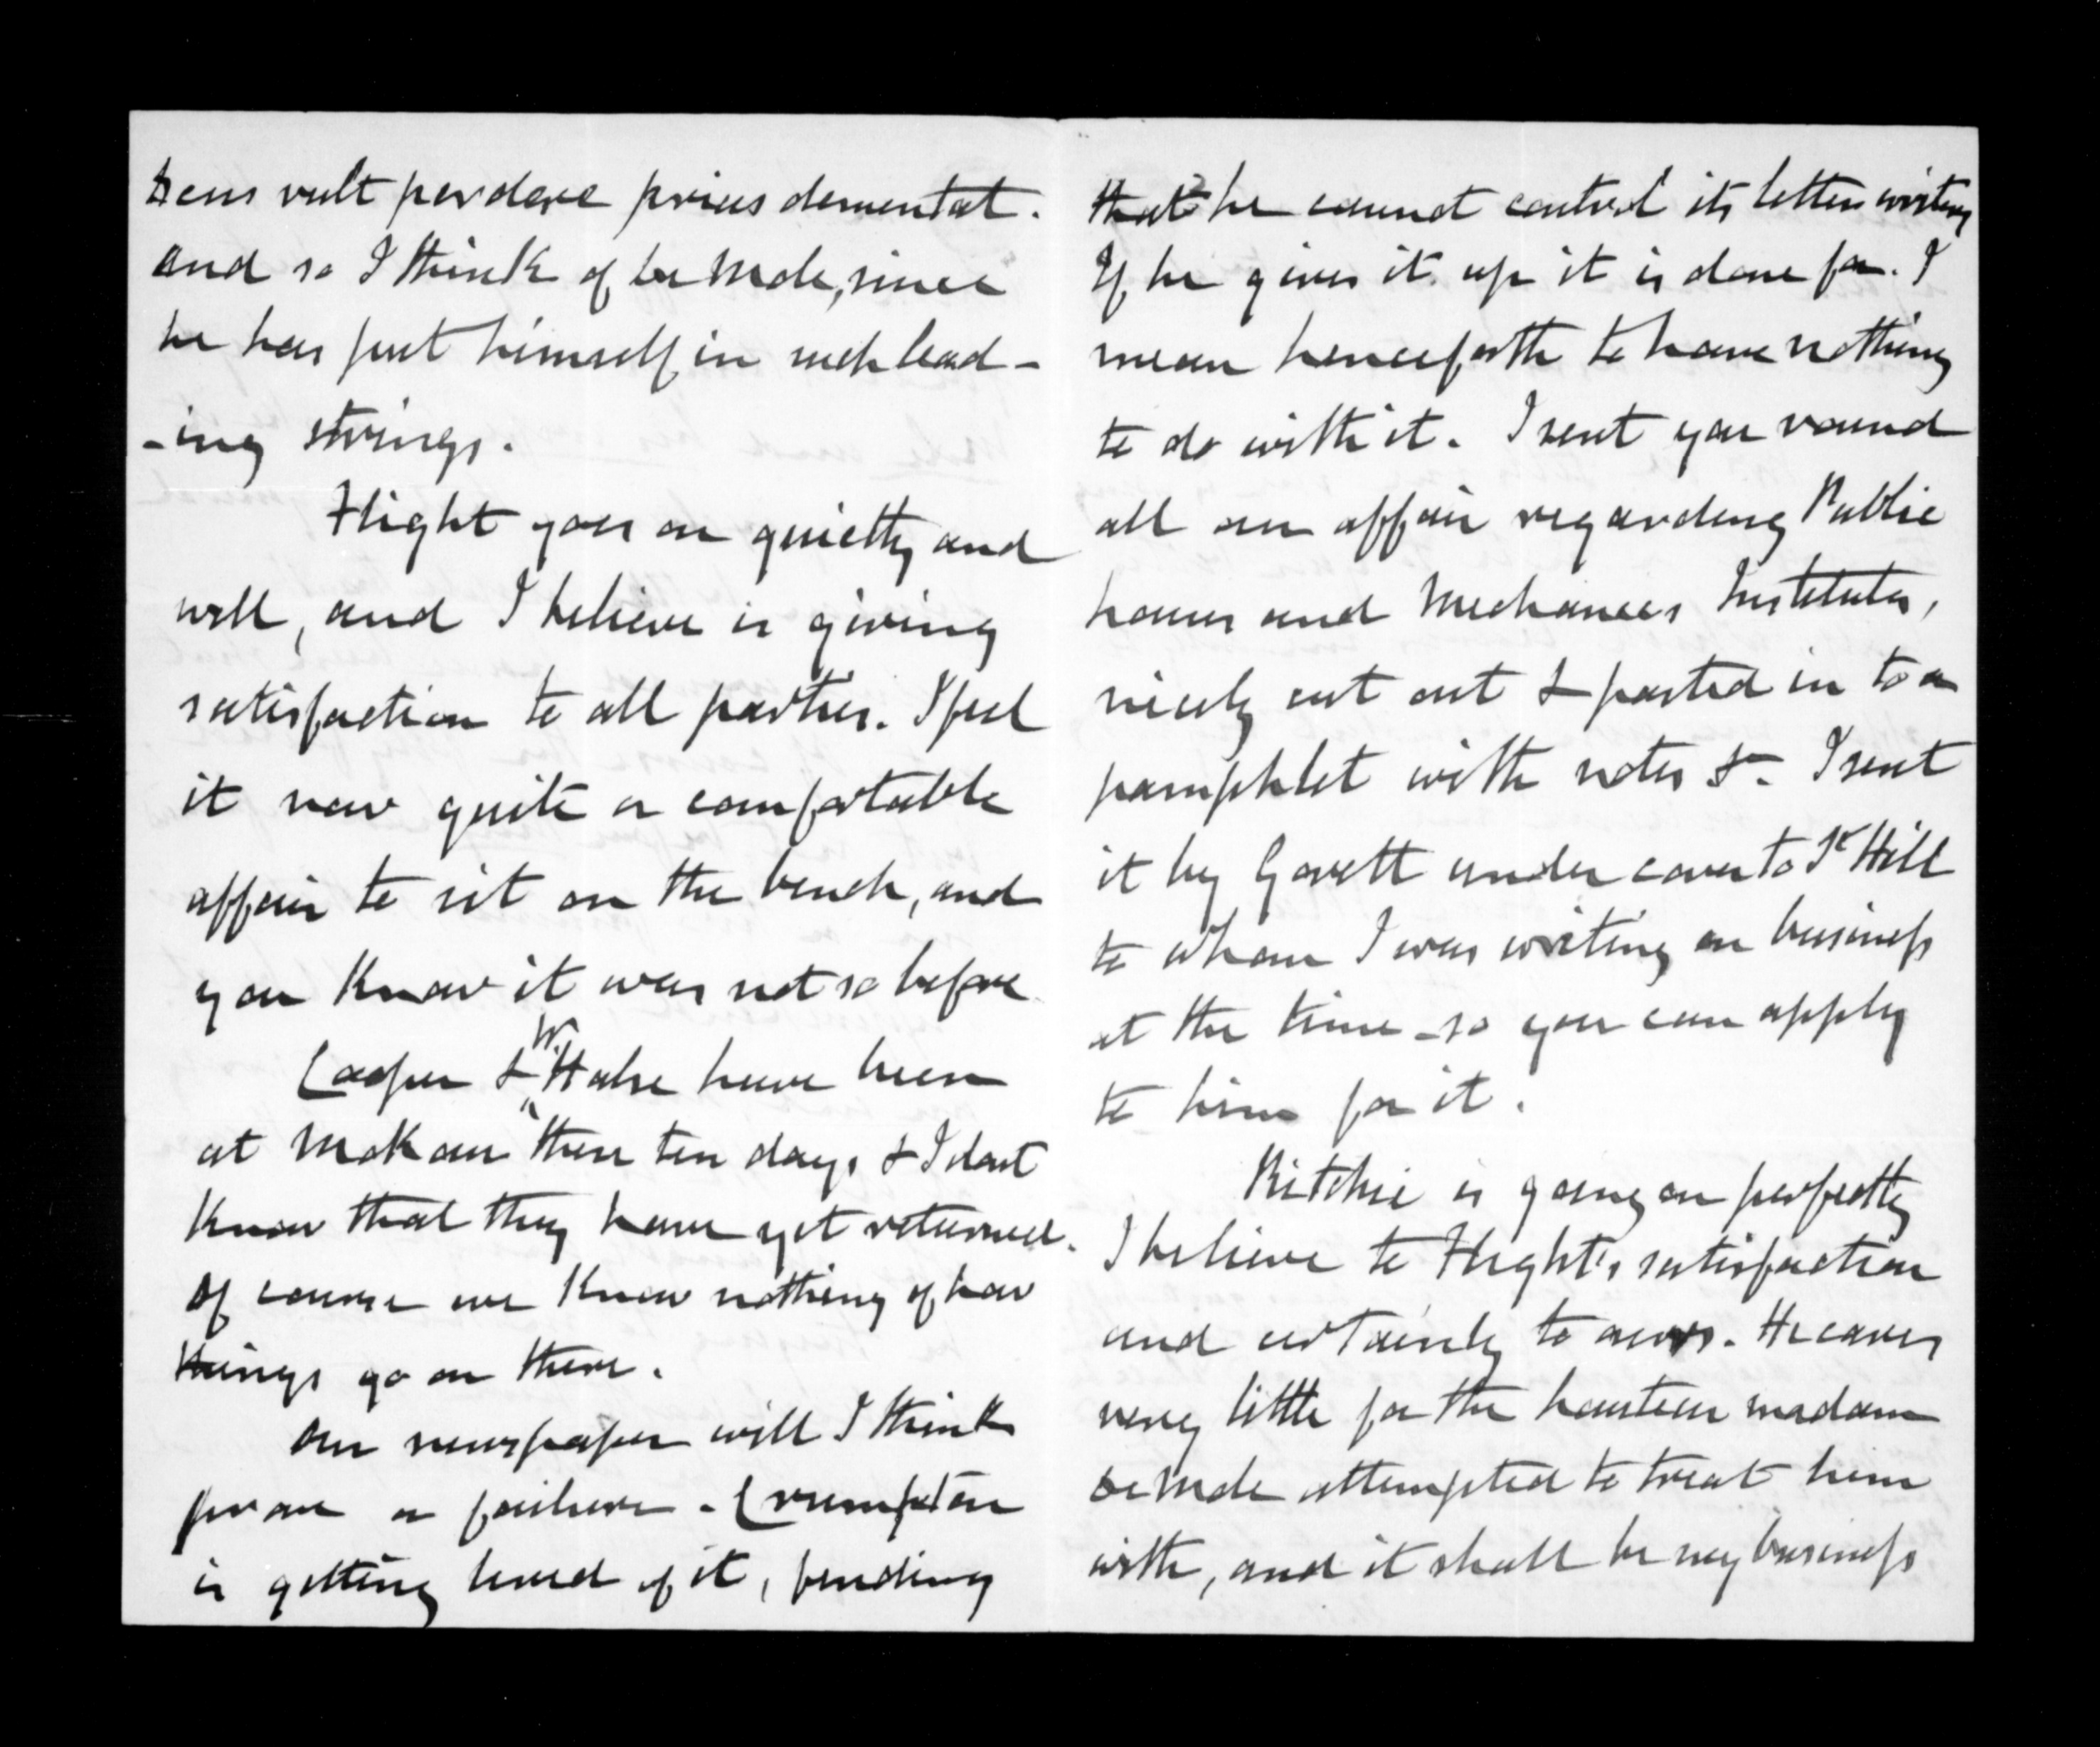 Deus vult perdere prius dementat.
and so I think of
he has put himself in such lead-
-ing strings.
Flight goes on quietly and
well, and I believe is giving
satisfaction to all parties. I feel
it now quite a comfortable
affair to sit on the bench, and
you know it was not so before
Cooper & W. Halse have been
at Mokau these ten days & I dont
know that they have yet returned.
Of course we know nothing of how
things go on there.
Our newspaper will I think
prove a failure - Crompton
is getting tired of it, finding
that he cannot control its letter writers
If he gives it up it is done for. I
mean henceforth to have nothing
to do with it. I sent you round
all our affair regarding Public
houses and Mechanics Institutes,
nicely cut out & pasted in to a
pamphlet with notes &c. I sent
it by Govett under cover to St Hill
to whom I was writing on business
at the time - so you can apply
to him for it.
Ritchie is going on perfectly
I believe to Flight's satisfaction
and certainly to ours. He cares
very little for the hauteur madam
attempted to treat him
with, and it shall be my business